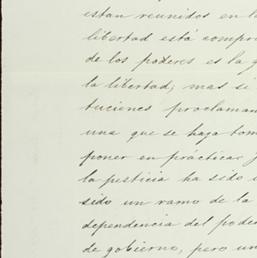 estan reunidos en l
libertad está compr
de los poderes es la g
la libertad; mas si
tuciones proclaman
una que se haya tom
poner en práctica
la justicia ha sido
sido un ramo de la
dependencia del pode
de gobierno, pero un